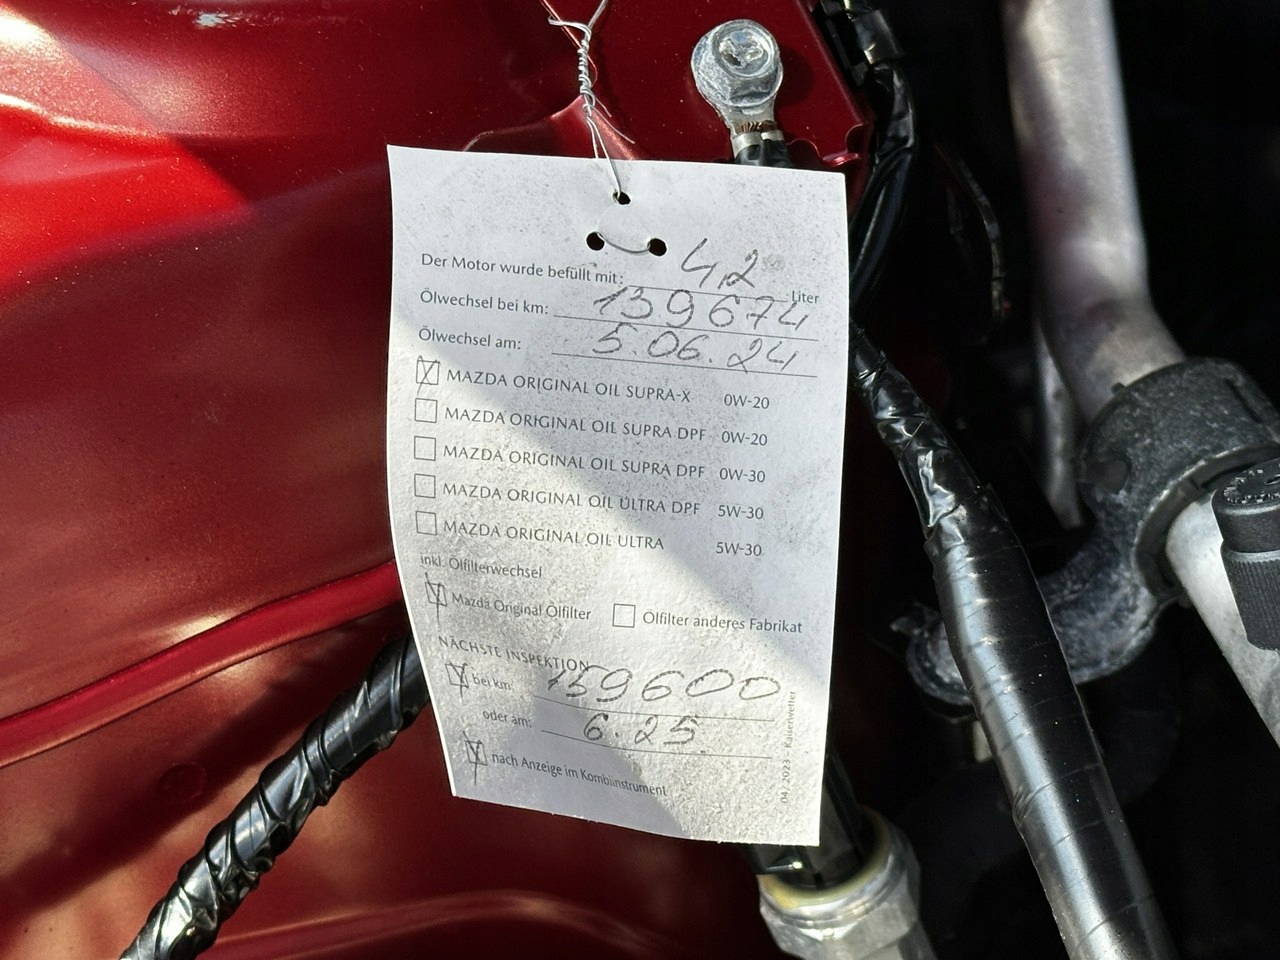 Der Motor wurde befüllt mit: 4,2 Liter
Ölwechsel bei km: 139674
Ölwechsel am: 5.06.24
MAZDA ORIGINAL OIL SUPRA-X 0W-20
MAZDA ORIGINAL OIL SUPRA DPF 0W-20
MAZDA ORIGINAL OIL SUPRA DPF 0W-30
MAZDA ORIGINAL OIL ULTRA DPF 5W-30
MAZDA ORIGINAL OIL ULTRA 5W-30
inkl. Ölfilterwechsel
Mazda Original Ölfilter Ölfilter anderes Fabrikat
NÄCHSTE INSPEKTION
bei km: 159600
oder am: 6.25
nach Anzeige im Kombiinstrument
04/2023 - Kaiserwetter